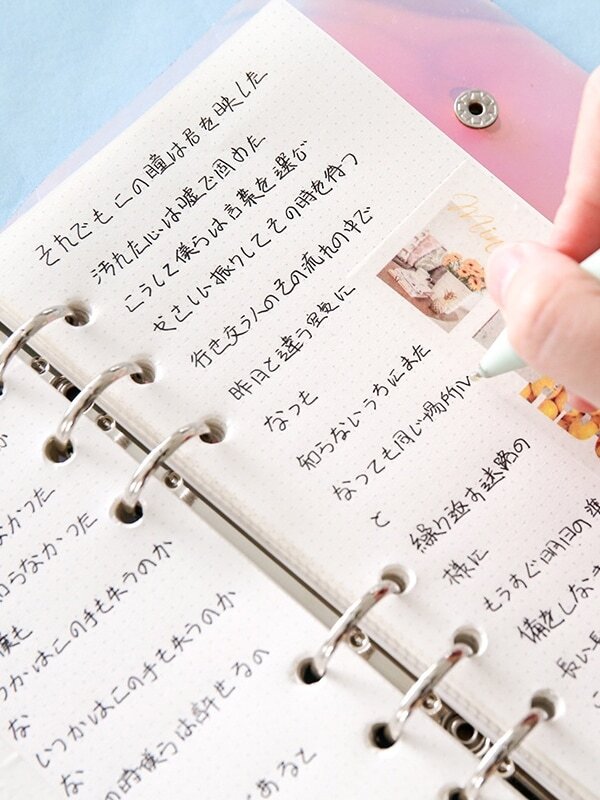 かなかった
知らなかった
僕も
いつかはこの手も失うのか
な
いつかはこの手も失うのか
な
の時僕らは許せるの
あると
それでもこの瞳は君を映した
汚れた心は嘘で固めた
こうして僕らは言葉を選ぶ
やさしい振りしてその時を待つ
行き交う人のその流れの中で
昨日と違う空気に
なっも
知らないうちにまた
なっても同じ場所い
と
繰り返す迷路の
様に
もうすぐ明日の準
備をしなき
長い長
Min